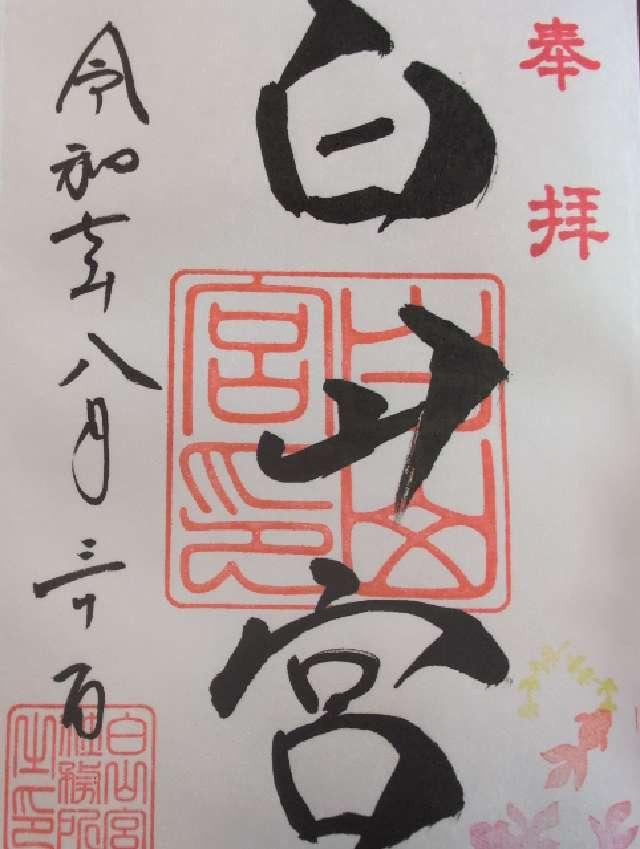 奉拝
白山宮
白山宮印
令和七年八月三十一日
白山宮
社務所
之印